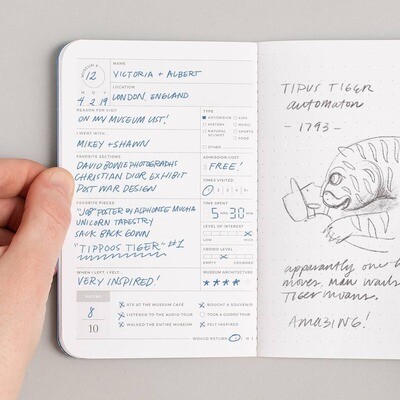 MUSEUM #
12
M D Y
4 2 19
NAME
VICTORIA + ALBERT
LOCATION
LONDON, ENGLAND
REASON FOR VISIT
ON MY MUSEUM LIST!
I WENT WITH
MIKEY + SHAWN
FAVORITE SECTIONS
DAVID BOWIE PHOTOGRAPHS
CHRISTIAN DIOR EXHIBIT
POST WAR DESIGN
FAVORITE PIECES
"JOB" POSTER BY ALPHONSE MUCHA
UNICORN TAPESTRY
SACK BACK GOWN
"TIPPOOS TIGER" #1
WHEN I LEFT I FELT
VERY INSPIRED!
8
10
TYPE
ART/DESIGN KIDS
HISTORY MUSIC
NATURAL SCIENCE SPORTS
FOOD
OTHER
ADMISSION COST
FREE!
TIMES VISITED
1 2 3 4 5
TIME SPENT
5 30
LEVEL OF INTEREST
LOW HIGH
CROWD LEVEL
EMPTY CROWDED
MUSEUM ARCHITECTURE
ATE AT THE MUSEUM CAFÉ
BOUGHT A SOUVENIR
LISTENED TO THE AUDIO TOUR
TOOK A GUIDED TOUR
WALKED THE ENTIRE MUSEUM
FELT INSPIRED
WOULD RETURN
TIPUS TIGER
automaton
- 1793 -
apparently one
moves. man wails
Tiger moans.
AMAZING!